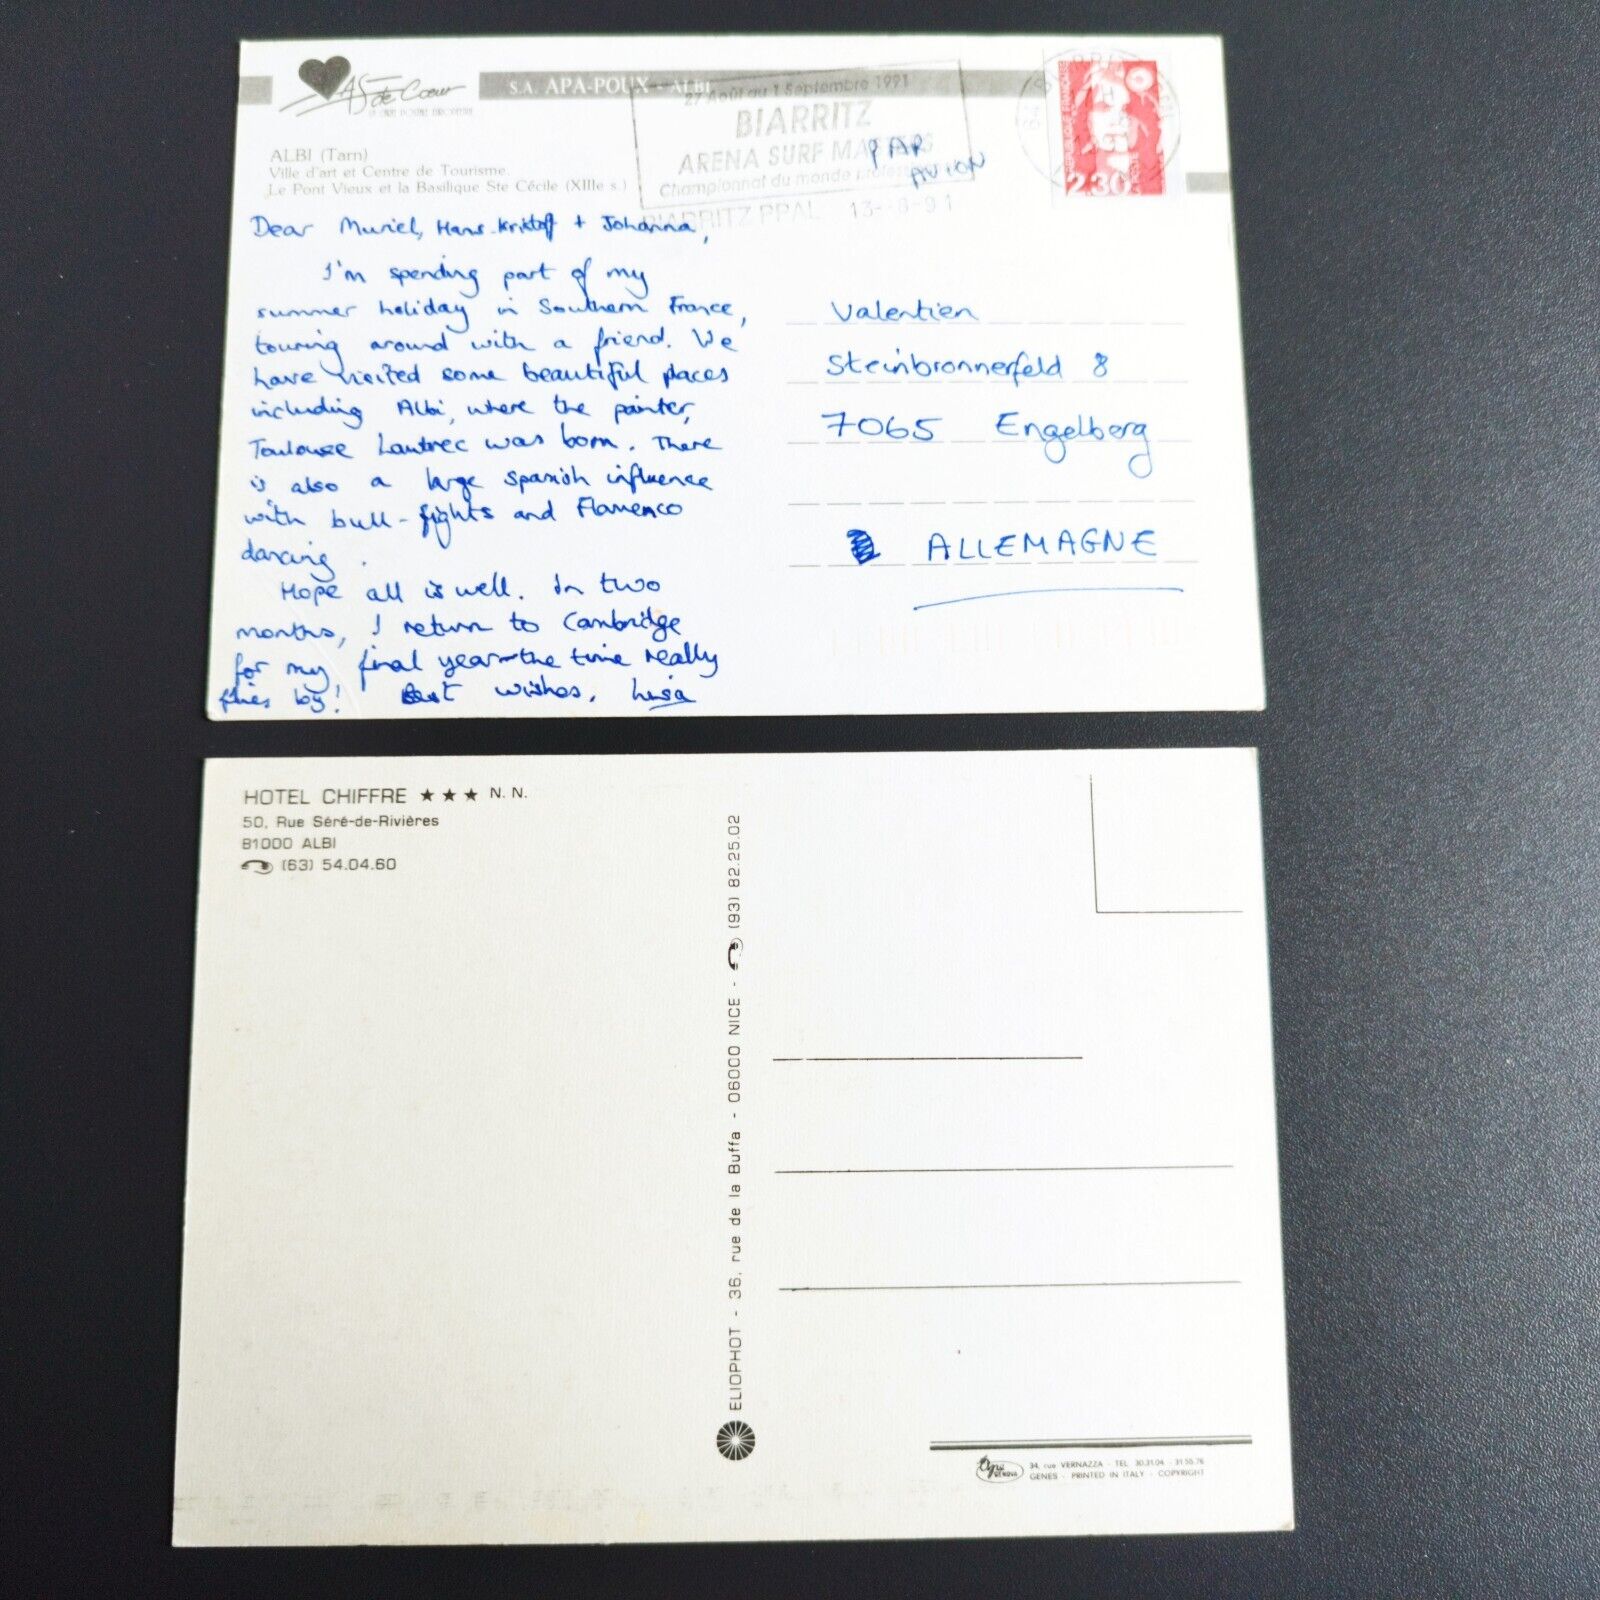 As de Cœur
S.A. APA-POUX - ALBI
ALBI (Tarn)
Ville d'art et Centre de Tourisme.
Le Pont Vieux et la Basilique Ste Cécile (XIIIe s.)
27 Août au 1 Septembre 1991
BIARRITZ
ARENA SURF MASTERS
Championnat du monde
BIARRITZ PPAL 13-8-91
PAR
AVION
REPUBLIQUE FRANÇAISE
2,30
LA POSTE
Dear Muriel, Hans-Kristoff + Johanna,
I'm spending part of my
summer holiday in Southern France,
touring around with a friend. We
have visited some beautiful places
including Albi, where the painter,
Toulouse Lautrec was born. There
is also a large Spanish influence
with bull-fights and Flamenco
dancing.
Hope all is well. In two
months, I return to Cambridge
for my final year - the time really
flies by! Best wishes,
Valentien
Steinbronnerfeld 8
7065 Engelberg
ALLEMAGNE
HOTEL CHIFFRE ★★★ N.N.
50, Rue Séré-de-Rivières
81000 ALBI
(63) 54.04.60
ELIOPHOT - 36, rue de la Buffa - 06000 NICE - (93) 82.25.02
34, rue VERNAZZA - TEL. 30.31.04 - 31.55.76
GENES - PRINTED IN ITALY - COPYRIGHT